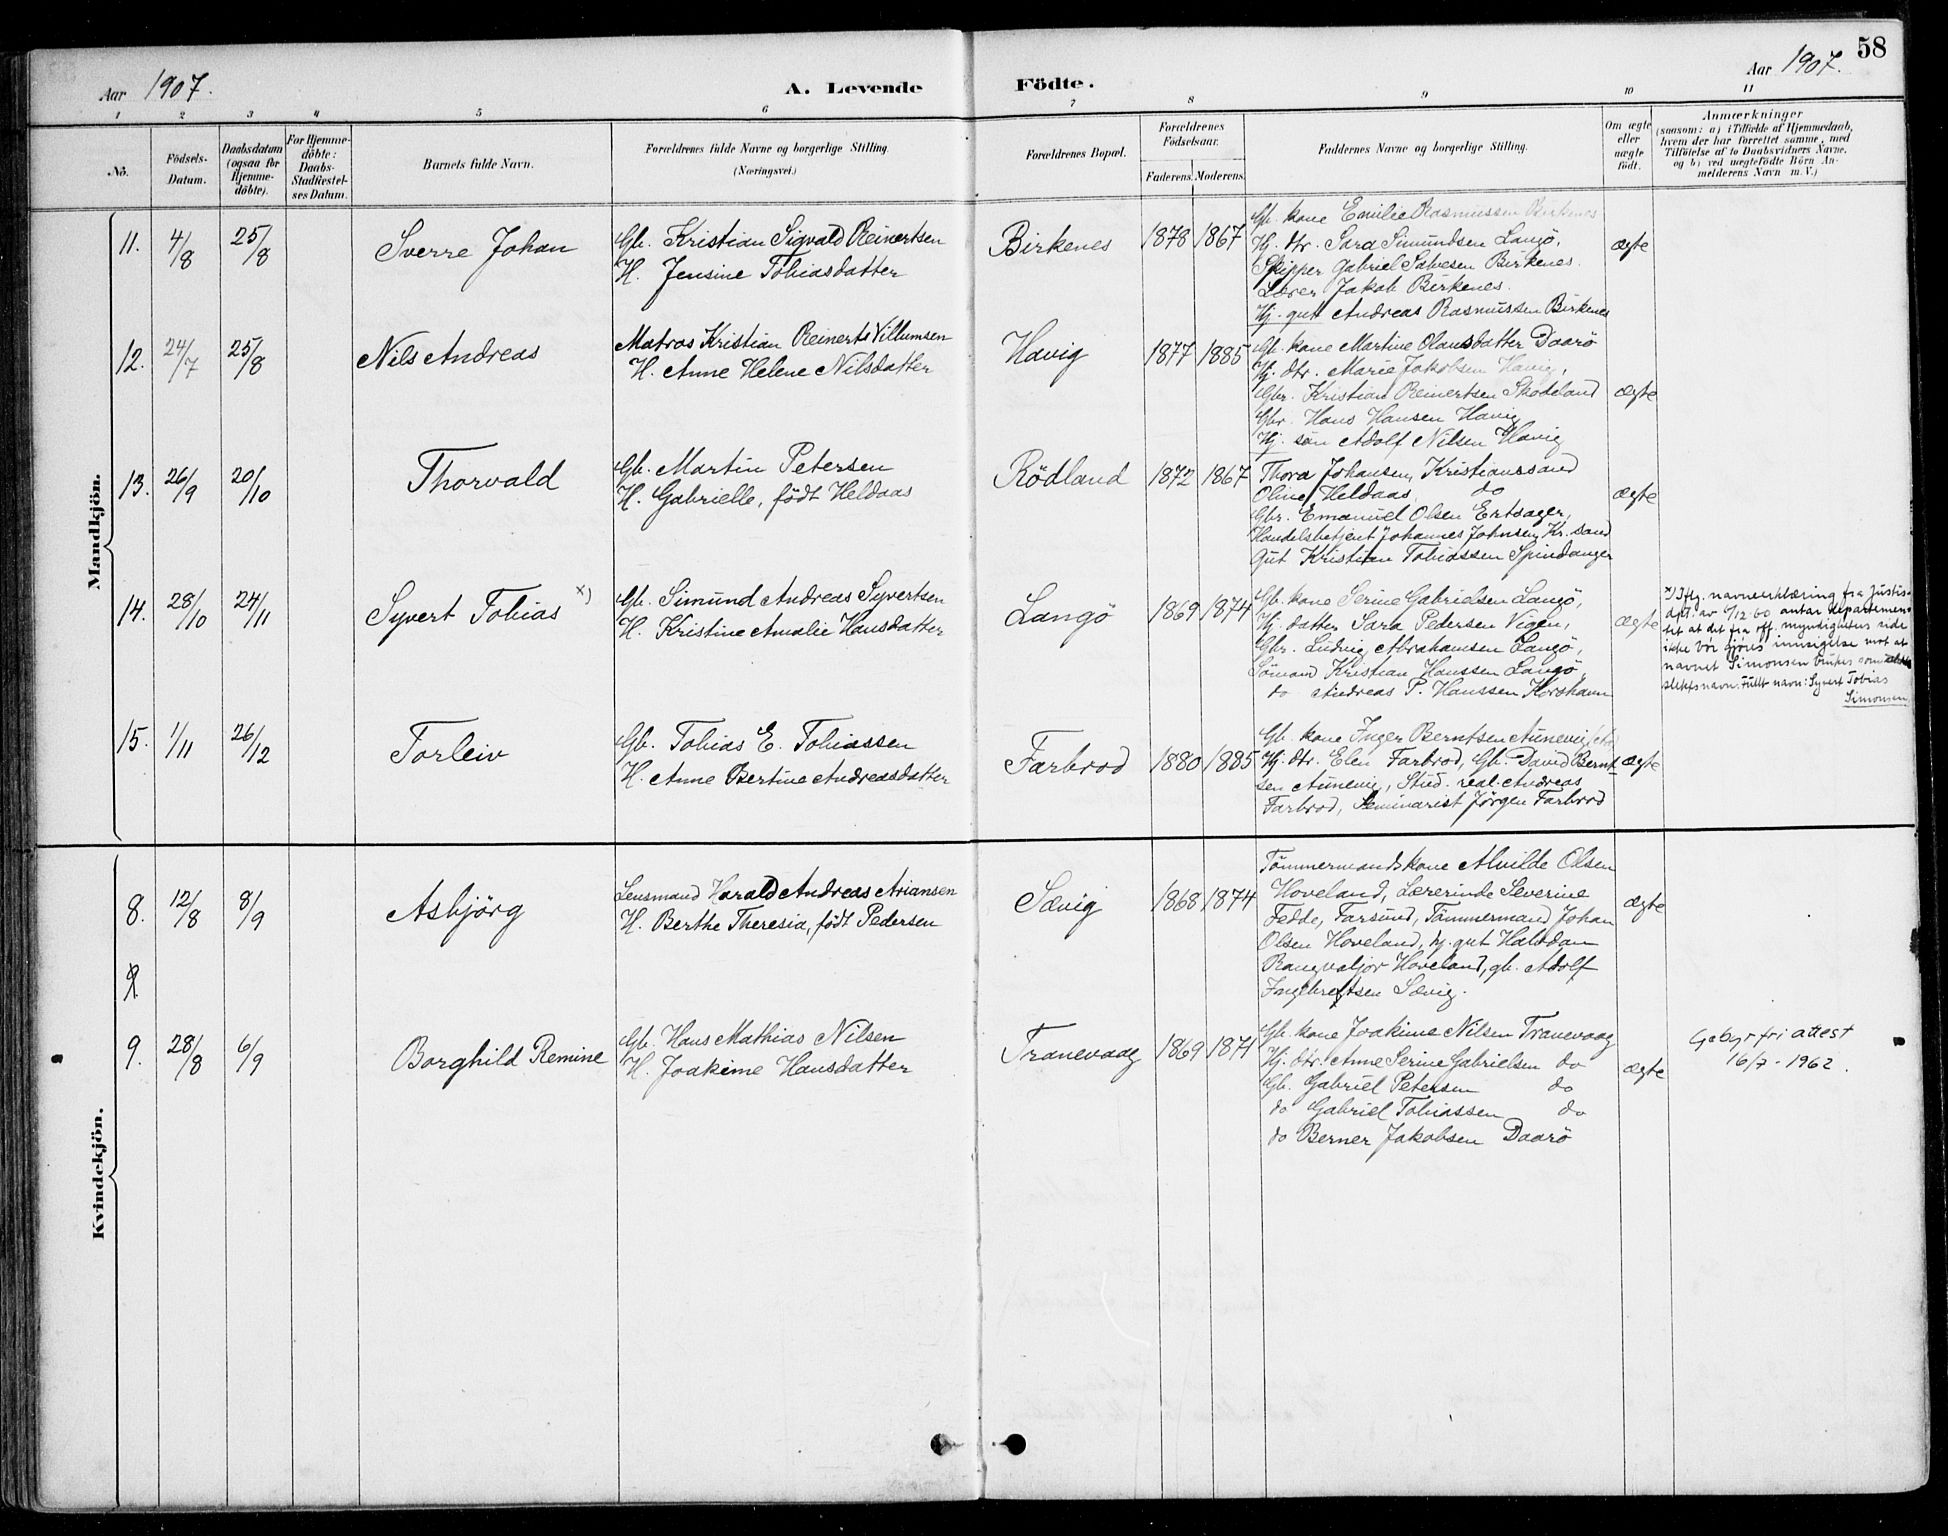 58
Aar 1907.
A. Levende Födte.
Aar 1907.
1 2 3 4 5 6 7 8 9 10 11
No.
Födsels-
Datum.
Daabsdatum
(ogsaa for
Hjemme-
döbte).
For Hjemme-
döbte:
Daabs-
Stadfæstel-
ses Datum.
Barnets fulde Navn.
Forældrenes fulde Navne og borgerlige Stilling.
(Næringsvei.)
Forældrenes Bopæl.
Forældrenes
Födselsaar.
Faderens. Moderens.
Faddernes Navne og borgerlige Stilling.
Om ægte
eller
uægte
födt.
Anmærkninger
(saasom: a) i Tilfælde af Hjemmedaab,
hvem der har forrettet samme, med
Tilföielse af to Daabsvidners Navne,
og b) ved uægtefödte Börn An-
melderens Navn m. V.)
Mandkjön.
11. 4/8 25/8 Sverre Johan
Gb. Kristian Sigvald Reinertsen
H. Jensine Tobiasdatter
Birkenes 1878 1867
Gb. kone Emilie Rasmussen Birkenes
Hj. dtr. Sara Simundsen Langö,
Skipper Gabriel Salvesen Birkenes.
Lærer Jakob Birkenes.
Hj. gut Andreas Rasmussen Birkenes
ægte
12. 24/7 25/8 Nils Andreas
Matros Kristian Reinerts Villumsen
H. Anne Helene Nilsdatter
Havig 1877 1885
Gb. kone Martine Olausdatter Daarö
Hj. dtr. Marie Jakobsen Havig,
Gbr. Kristian Reinertsen Skodeland
Gbr. Hans Hansen Havig
Hj. sön Adolf Nilsen Havig
ægte
13. 26/9 20/10 Thorvald
Gb. Martin Petersen
H. Gabrielle, födt Heldaas
Rödland 1872 1867
Thora Johansen, Kristianssand
Oline Heldaas, do
Gbr. Emanuel Olsen Ertsager,
Handelsbetjent Johannes Johnsen, Kr.sand
Gut Kristian Tobiassen Spindanger
ægte
14. 28/10 24/11 Syvert Tobias x)
Gb. Simund Andreas Syvertsen
H. Kristine Amalie Hansdatter
Langö 1869 1874
Gb. kone Serine Gabrielsen Langö,
Hj. datter Sara Pedersen Vigen,
Gbr. Ludvig Abrahamsen Langö,
Sömand Kristian Hanssen Langö,
do Andreas P. Hanssen Korshamn
ægte
x) Iflg. navneerklæring fra Justis-
dpt. av 6/12 60 antar departemen-
tet at det fra off. myndigheters side
ikke bör gjöres innsigelse mot at
navnet Simonsen brukes som
slektsnavn. Fullt navn: Syvert Tobias
Simonsen
15. 1/11 26/12 Torleiv
Gb. Tobias E. Tobiassen
H. Anne Bertine Andreasdatter
Farbrod 1880 1885
Gb. kone Inger Berntsen Aunevig,
Hj. dtr. Elen Farbrod, Gb. David Bernt-
sen Aunevig, Stud. real. Andreas
Farbrod, Seminarist Jørgen Farbrod
ægte
Kvindekjön.
8. 12/8 8/9 Asbjörg
Lensmand Harald Andreas Ariansen
H. Berthe Theresia, födt Pedersen
Sævig 1868 1874
Tömmermandskone Alvilde Olsen
Hoveland, Lærerinde Severine
Fedde, Farsund, Tömmermand Johan
Olsen Hoveland, hj. gut Halvdan
Hoveland, gb. Adolf
Ingebretsen Sævig.
ægte
9. 28/8 6/9 Borghild Remine
Gb. Hans Mathias Nilsen
H. Joakime Hansdatter
Tranevaag 1869 1871
Gb. kone Joakime Nilsen Tranevaag
Hj. dtr. Anne Serine Gabrielsen do
Gb. Gabriel Petersen do
do Gabriel Tobiassen do
do Berner Jakobsen Daarö
ægte
Gebyrfri attest
16/7-1962.